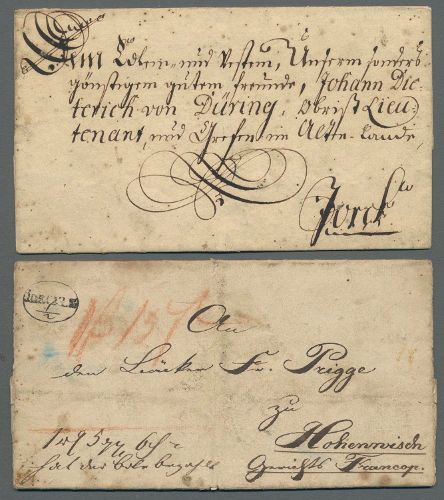 Dem Edlen und Vesten, Unserm sonders
günstigem gutem freunde, Johann Die-
terich von Düring, Obrist Lieu-
tenant, und Grefen im Alten Lande,
Jorck
An
den Fr. Prigge
zu
Hohenwisch
Gerichts Francop.
hat der bote bezahlt